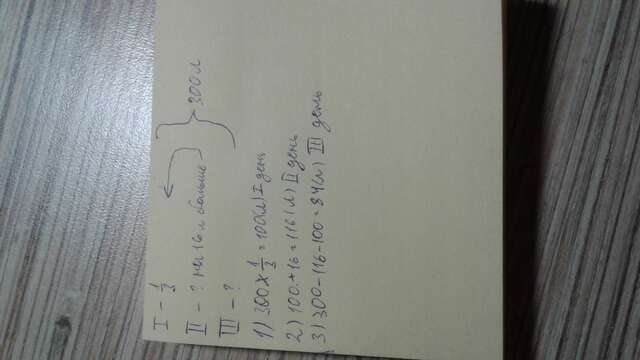 I - 1/3
II - ? на 16 л больше
III - ?
300 л
1) 300 × 1/3 = 100(л) I день
2) 100. + 16 = 116 (л) II день
3) 300 - 116 - 100 = 84(л) III день